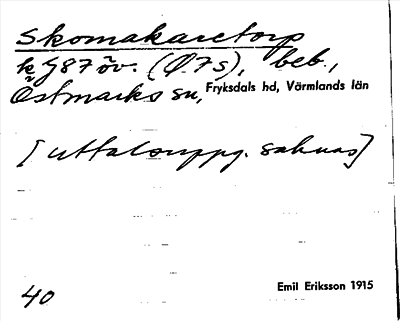 Skomakaretorp
k 987 öv. (Ö. 7s), beb.,
Östmarks sn, Fryksdals hd, Värmlands län
[uttalsuppg. saknas]
40 Emil Eriksson 1915